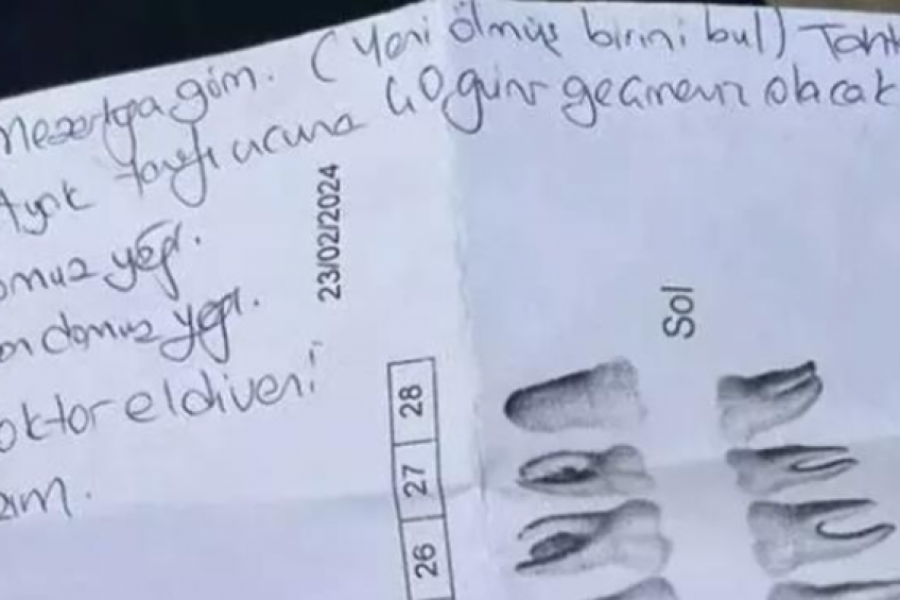 mezarlığa göm. (Yeni ölmüş birini bul) Taht
Ayrık tarafı ucuna 40 gün geçmemiş olacak
omuz yağı.
domuz yağı.
oktor eldiveni
am.
23/02/2024
Sol
28
27
26